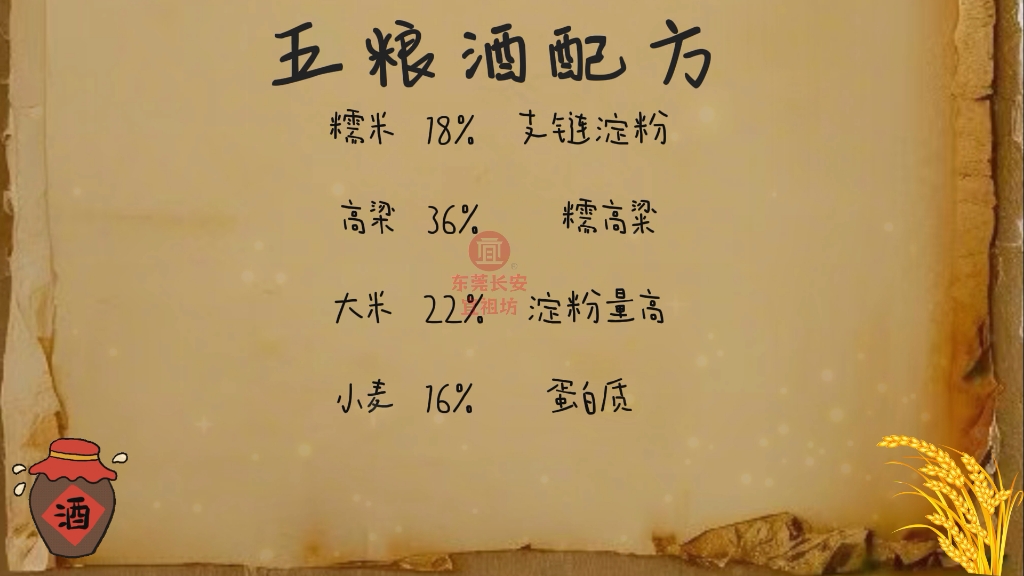 五粮酒配方
糯米 18% 支链淀粉
高粱 36% 糯高粱
东莞长安
宜祖坊
大米 22% 淀粉量高
小麦 16% 蛋白质
酒